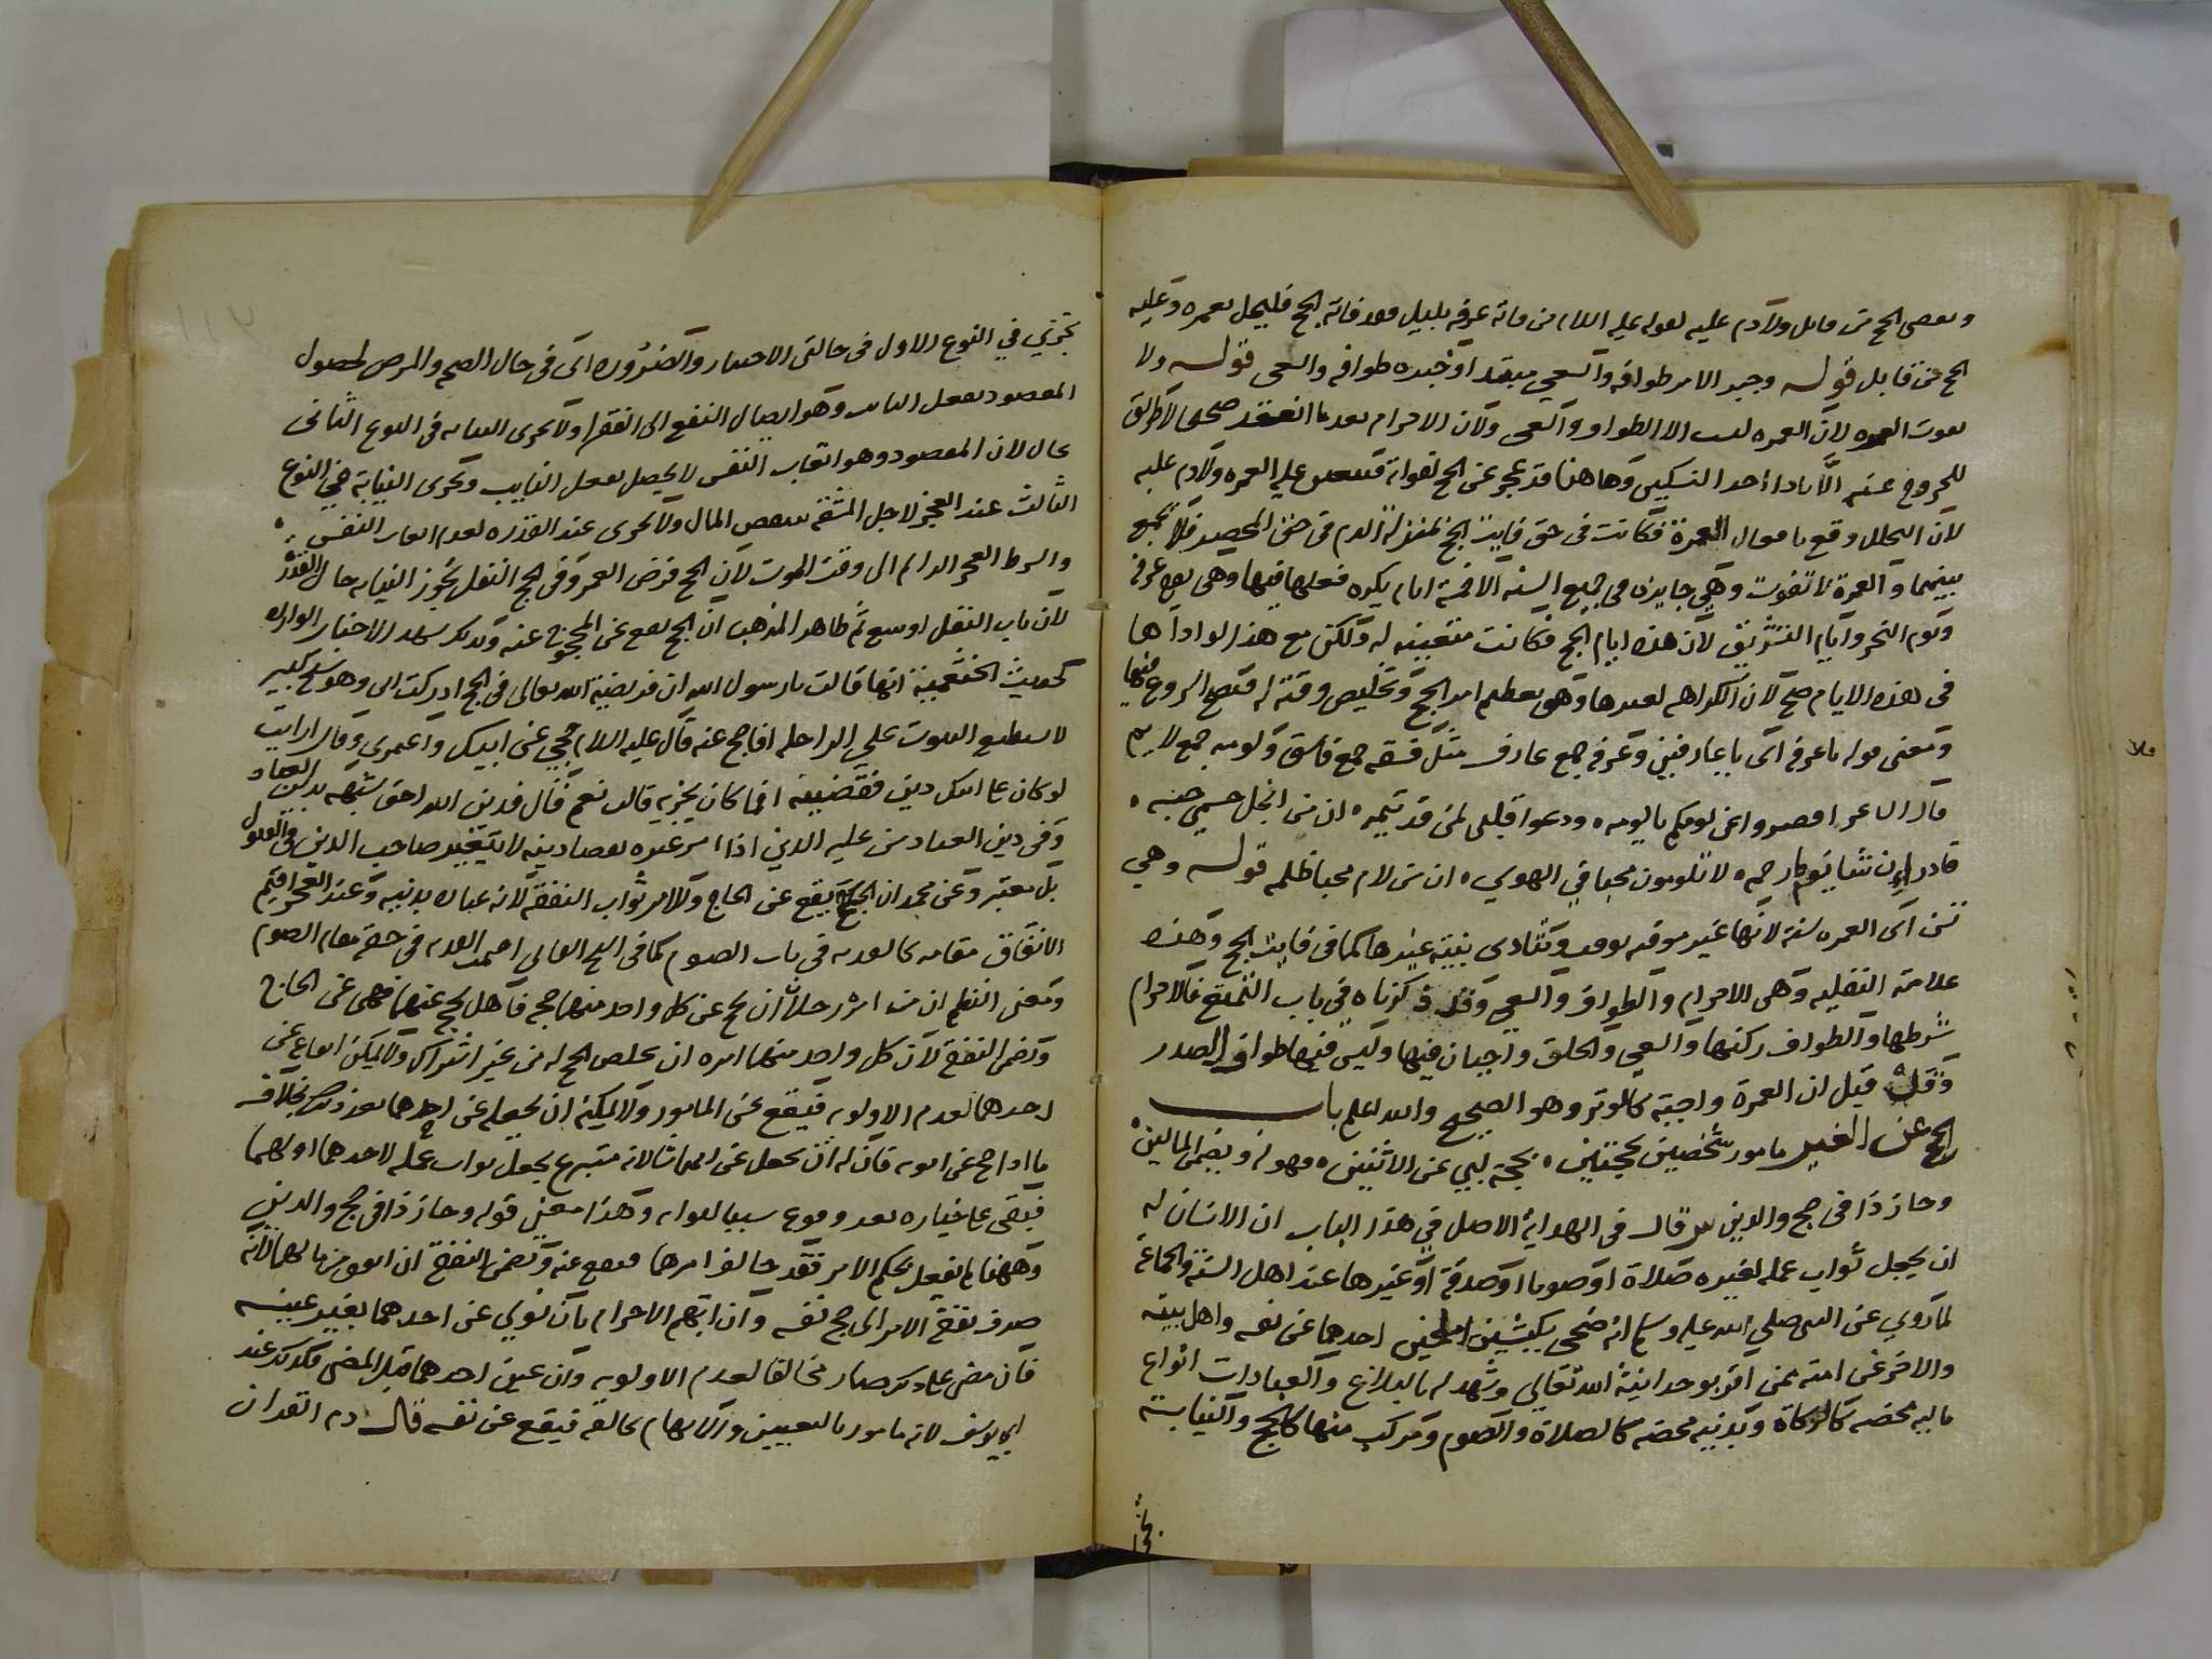 ويقضي الحج من قابل ولا دم عليه لقوله عليه السلام من فاته عرفة بليل فقد فاته الحج فليحل بعمرة وعليه
الحج من قابل قوله وجبر الامر طوافه والسعي مبتدا او خبره طوافه والسعي قوله ولا
يفوت العمره لان العمره ليست الا الطواف والسعي ولان الاحرام بعد ما انعقد صحيحا لا طريق
للخروج عنه الا باداء احد النسكين وهاهنا قد عجز عن الحج لفواته فتتعين عليه العمره ولا دم عليه
لان التحلل وقع بافعال العمرة فكانت في حق فايت الحج بمنزلة الدم في حق المحصر فلا يجمع
بينهما والعمرة لا تفوت وهي جايزه في جميع السنه الا خمسة ايام يكره فعلها فيها وهي يوم عرفة
ويوم النحر وايام التشريق لان هذه ايام الحج فكانت متعينه له ولكن مع هذا لو اداها
في هذه الايام صح لان الكراهه لغيرها وهو تعظيم امر الحج وتخليص وقته له فيصح الشروع فيها
ومعنى قوله يا عرفه اي يا عارفين وعرفه جمع عارف مثل فسقه جمع فاسق ولومه جمع لايم
قال الشاعر اقصروا عن لومكم يا لومه ودعوا قلبي لمن قد تيمه ان من انحل جسمي حبه
قادر ان شا يوما رحمه لا تلومون محبا في الهوي ان من لام محبا ظلمه قوله وهي
تسن اي العمره سنه لانها غير موقته بوقت وتتادى بنية غيرها كما في فايت الحج وهذه
علامة النفليه وهي الاحرام والطواف والسعي وقد ذكرناه في باب التمتع فالاحرام
شرطها والطواف ركنها والسعي والحلق واجبان فيها وليس فيها طواف الصدر
وقد قيل ان العمرة واجبة كالوتر وهو الصحيح والله اعلم باب
الحج عن الغير مامور شخصين بحجتين بحجة لبي عن الاثنين فهو له ويضمن المالين
وجاز ذا في حج والدين س قال في الهداية الاصل في هذا الباب ان الانسان له
ان يجعل ثواب عمله لغيره صلاة او صوما او صدقة او غيرها عند اهل السنة والجماعة
لما روي عن النبي صلي الله عليه وسلم انه ضحى بكبشين املحين احدهما عن نفسه واهل بيته
والاخر عن امته ممن اقر بوحدانية الله تعالي وشهد له بالبلاغ والعبادات انواع
ماليه محضه كالزكاة وبدنيه محضه كالصلاة والصوم ومركب منهما كالحج والنيابة
تجزي
تجزي في النوع الاول في حالتي الاختيار والضروره اي في حال الصحه والمرض لحصول
المقصود بفعل النايب وهو ايصال النفع الى الفقرا ولا تجرى النيابه في النوع الثاني
بحال لان المقصود وهو اتعاب النفس لا يحصل بفعل النايب وتجرى النيابة في النوع
الثالث عند العجز لاجل المشقه بتنقيص المال ولا تجرى عند القدره لعدم اتعاب النفس
والشرط العجز الدايم الى وقت الموت لان الحج فرض العمر وفي حج النفل تجوز النيابه حال القدرة
لان باب النفل اوسع ثم ظاهر المذهب ان الحج يقع عن المحجوج عنه وبذلك تشهد الاخبار الوارده
كحديث الخثعمية انها قالت يا رسول الله ان فريضة الله تعالى في الحج ادركت ابي وهو شيخ كبير
لا يستطيع الثبوت علي الراحله افاحج عنه قال عليه السلام حجي عن ابيك واعمري وقال ارايت
لو كان على ابيك دين فقضيتيه اما كان يجزيه قالت نعم قال فدين الله احق شبهه بدين العباد
وفي دين العباد من عليه الدين اذا امر غيره بقضا دينه لا يتغير صاحب الدين في القبول
بل يعتبر وعن محمد ان الحج يقع عن الحاج وللامر ثواب النفقه لانه عباده بدنيه وعند العجز اقيم
الانفاق مقامه كالفديه في باب الصوم كما في الشيخ الفاني اقيمت الفديه في حقه مقام الصوم
ومعنى النظم ان من امره رجلان ان يحج عن كل واحد منهما حجه فاهل بحج عنهما فهي عن الحاج
ويضمن النفقه لان كل واحد منهما امره ان يخلص الحج له من غير اشتراك ولا يمكن ايقاعه عن
احدهما لعدم الاولويه فيقع عن المامور ولا يمكنه ان يجعله عن احدهما بعد ذلك بخلاف
ما اذا حج عن ابويه فان له ان يجعل عن ايهما شا لانه متبرع بجعل ثواب عمله لاحدهما او لهما
فيبقى على خياره بعد وقوعه سببا لثوابه وهذا معنى قوله وجاز ذا في حج والدين
وههنا يفعل بحكم الامر فقد خالف امرهما فيقع عنه ويضمن النفقة ان انفق من مالهما لانه
صرف نفقة الامر الى حج نفسه وان ابهم الاحرام بان نوي عن احدهما بغير عينه
فان مضى على ذلك صار مخالفا لعدم الاولويه وان عين احدهما قبل المضي فكذلك عند
ابي يوسف لانه مامور بالتعيين والابهام يخالفه فيقع عن نفسه قال دم القران